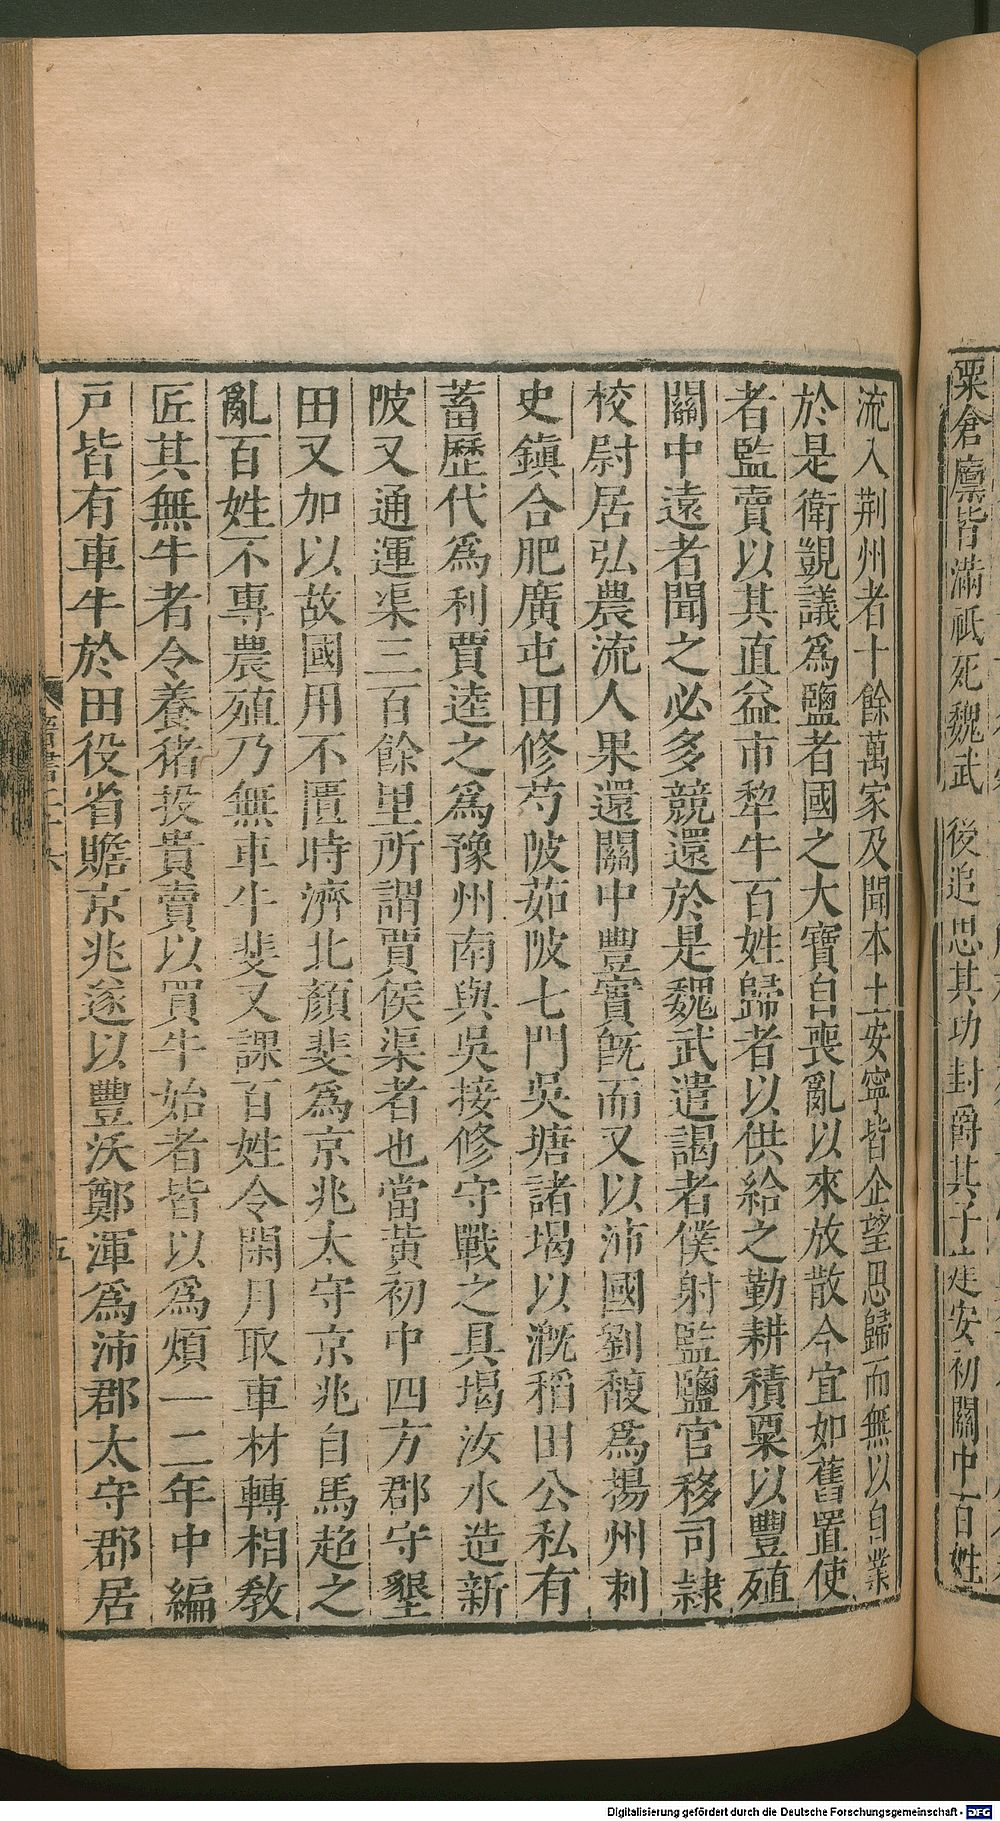 粟倉廪皆滿祗死魏武後追思其功封爵其子建安初關中百姓
流入荆州者十餘萬家及聞本土安寧皆企望思歸而無以自業
於是衛覬議爲鹽者國之大寶自喪亂以來放散今宜如舊置使
者監賣以其直益市犂牛百姓歸者以供給之勤耕積粟以豐殖
關中遠者聞之必多競還於是魏武遣謁者僕射監鹽官移司隷
校尉居弘農流人果還關中豐實旣而又以沛國劉馥爲揚州刺
史鎭合肥廣屯田修芍陂茹陂七門吳塘諸堨以漑稻田公私有
蓄歷代爲利賈逵之爲豫州南與吳接修守戰之具堨汝水造新
陂又通運渠三百餘里所謂賈侯渠者也當黃初中四方郡守墾
田又加以故國用不匱時濟北顏斐爲京兆太守京兆自馬超之
亂百姓不專農殖乃無車牛斐又課百姓令閑月取車材轉相敎
匠其無牛者令養猪投貴賣以買牛始者皆以爲煩一二年中編
戸皆有車牛於田役省贍京兆遂以豐沃鄭渾爲沛郡太守郡居
晉書二十六
五
Digitalisierung gefördert durch die Deutsche Forschungsgemeinschaft - DFG